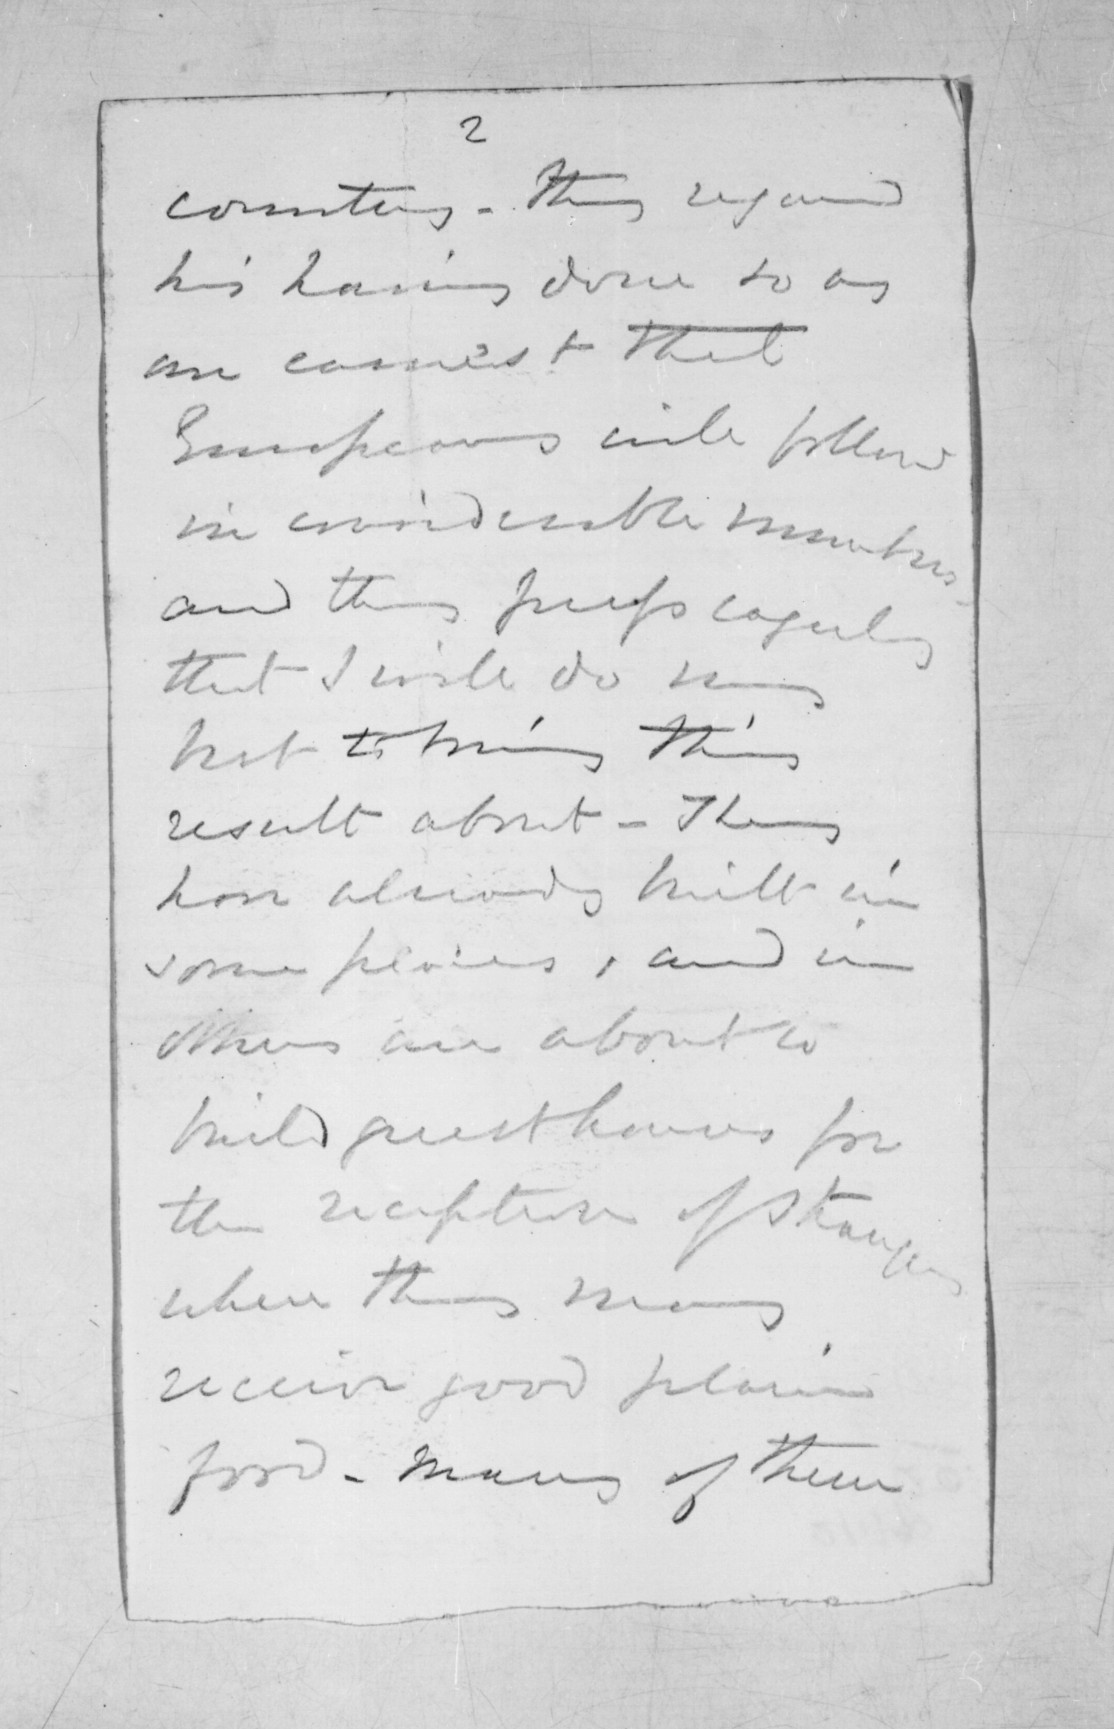 2
country - They regard
his having done so as
an earnest that
Europeans will follow
in considerable numbers -
and they press eagerly
that I will do my
best to bring this
result about - They
have already built in
some places, and in
others are about to
build guest houses for
the reception of strangers
where they may
receive good plain
food - Many of them